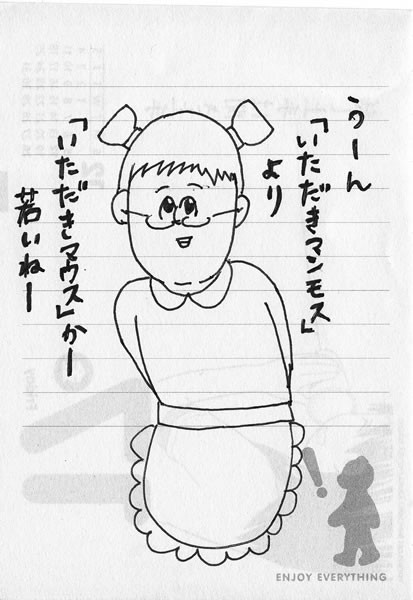 うーん
「いただきマンモス」
より
「いただきマウス」かー
若いねー
Friday
ENJOY EVERYTHING